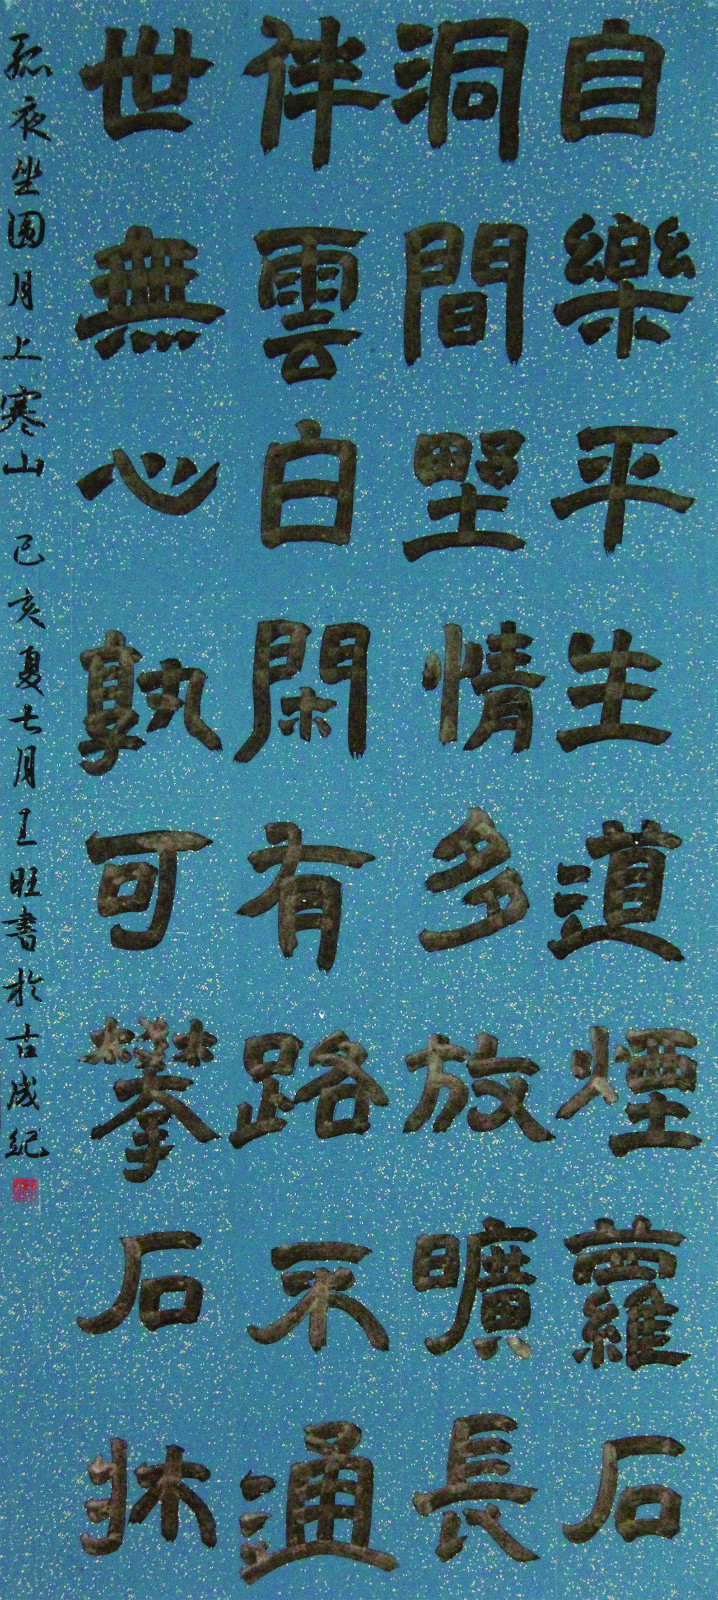 自樂平生道煙蘿石
洞間野情多放曠長
伴雲白閑有路不通
世無心孰可攀石牀
孤夜坐圓月上寒山 己亥夏七月王旺書於古成紀